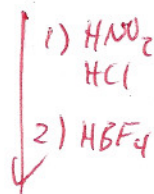 1) HNO2
HCl
2) HBF4